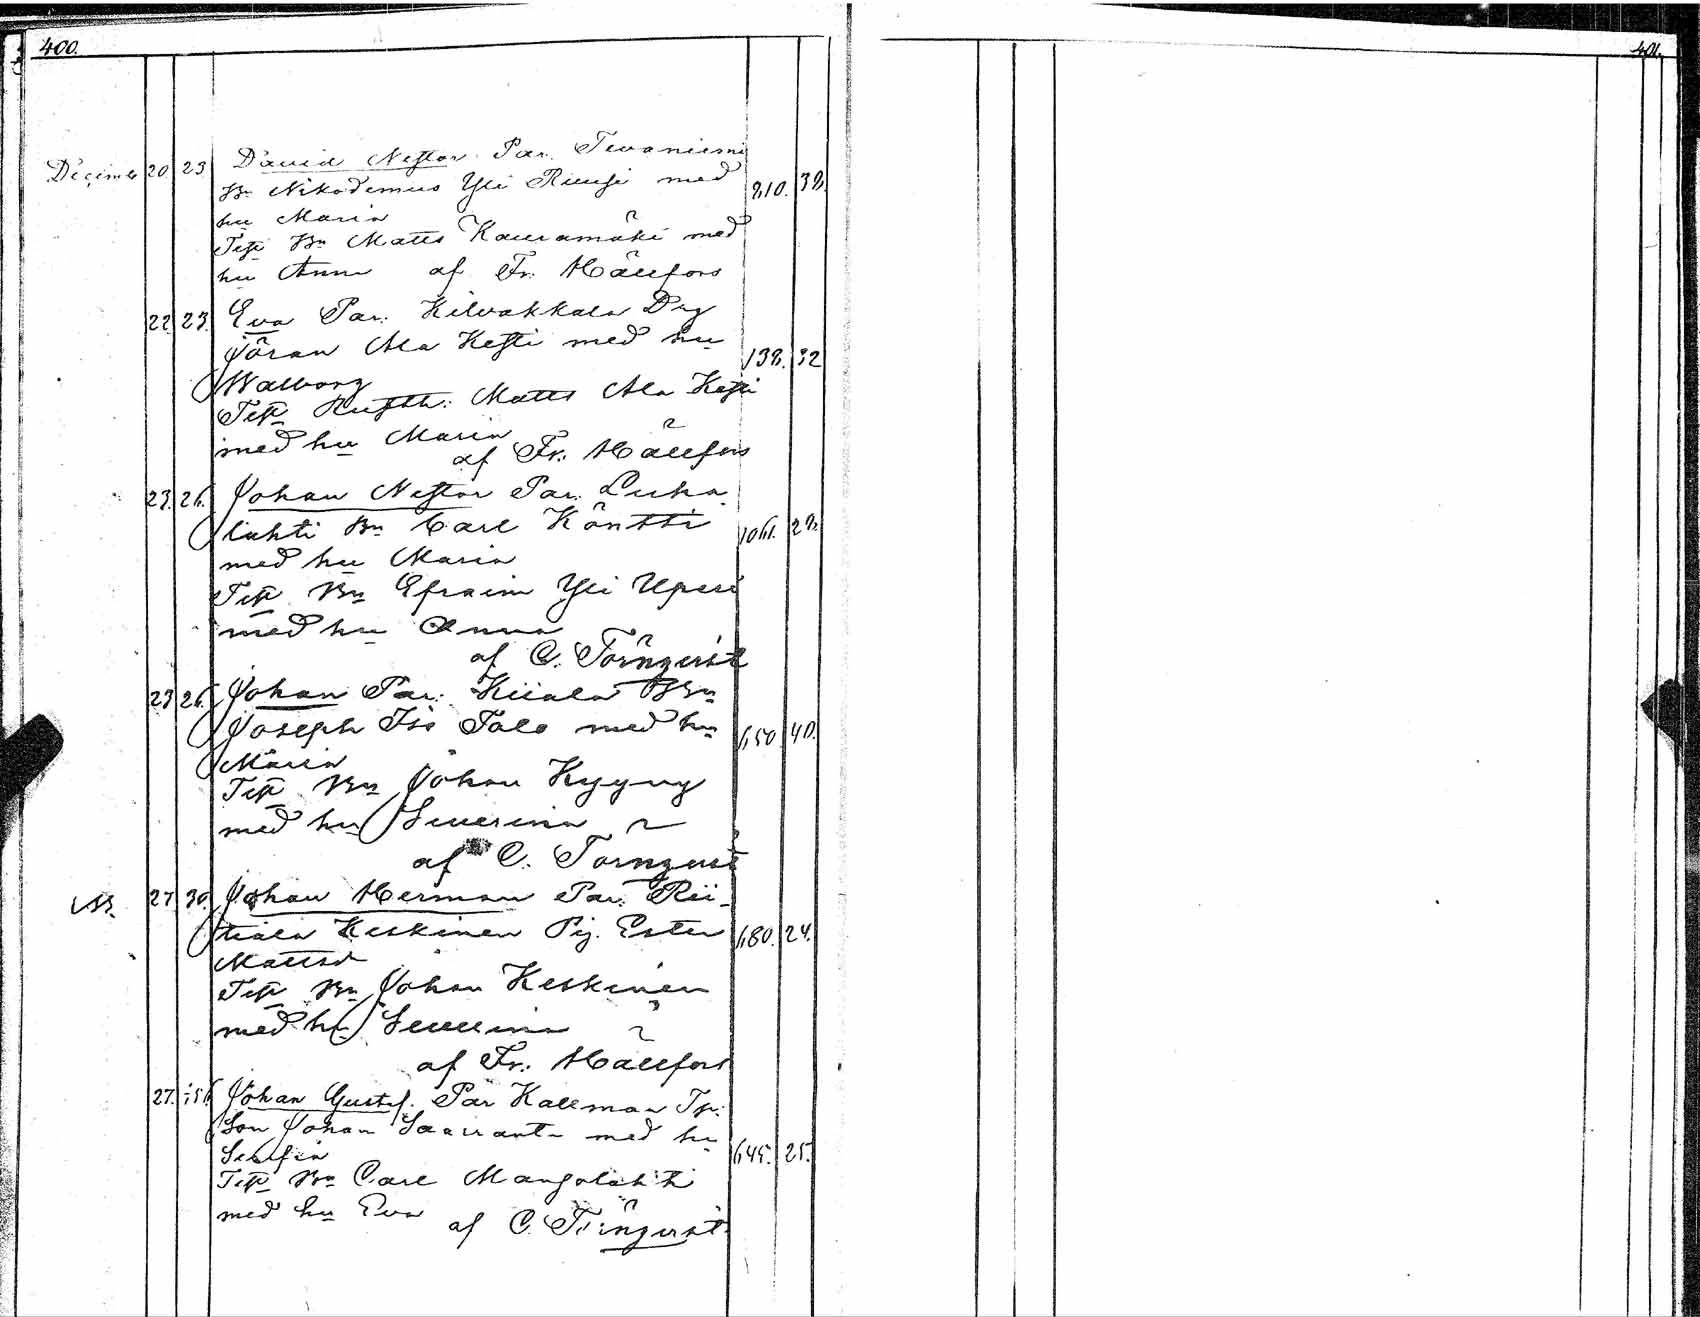 400.
401.
December 20 23 David Nestor. Par. Tevaniemi
Bn Nikodemus Yli Ruusi med 210. 38.
hu Maria
Test Bn Matts Kauramäki med
hu Anna af Fr. Hällfors
22 23. Eva Par. Kilvakkala Drg
Jöran Ala Kesti med hu 138. 32
Walborg
Test Matts Ala Kesti
med hu Maria
af Fr. Hällfors
23. 26. Johan Nestor Par. Luha
lahti Bn Carl Köntti
med hu Maria
Test Bn Efraim Yli Uperi
med hu Anna
af C. Törnqvist
23 26 Johan Par. Kiiala Bn
Joseph Iso Talo med hu 40.
Maria
Test Bn Johan Kyyny
med hu Severina
af C. Törnqvist
27 30. Johan Herman Par. Rii-
tiala Keskinen Pig. Ester 24.
Mattsd
Test Bn Johan Keskinen
med hu Severina
af Fr. Hällfors
27. Johan Gustaf. Par Kallmaa
Son Johan med hu 25.
Serafia
Test Bn Carl
med hu Eva af C. Törnqvist